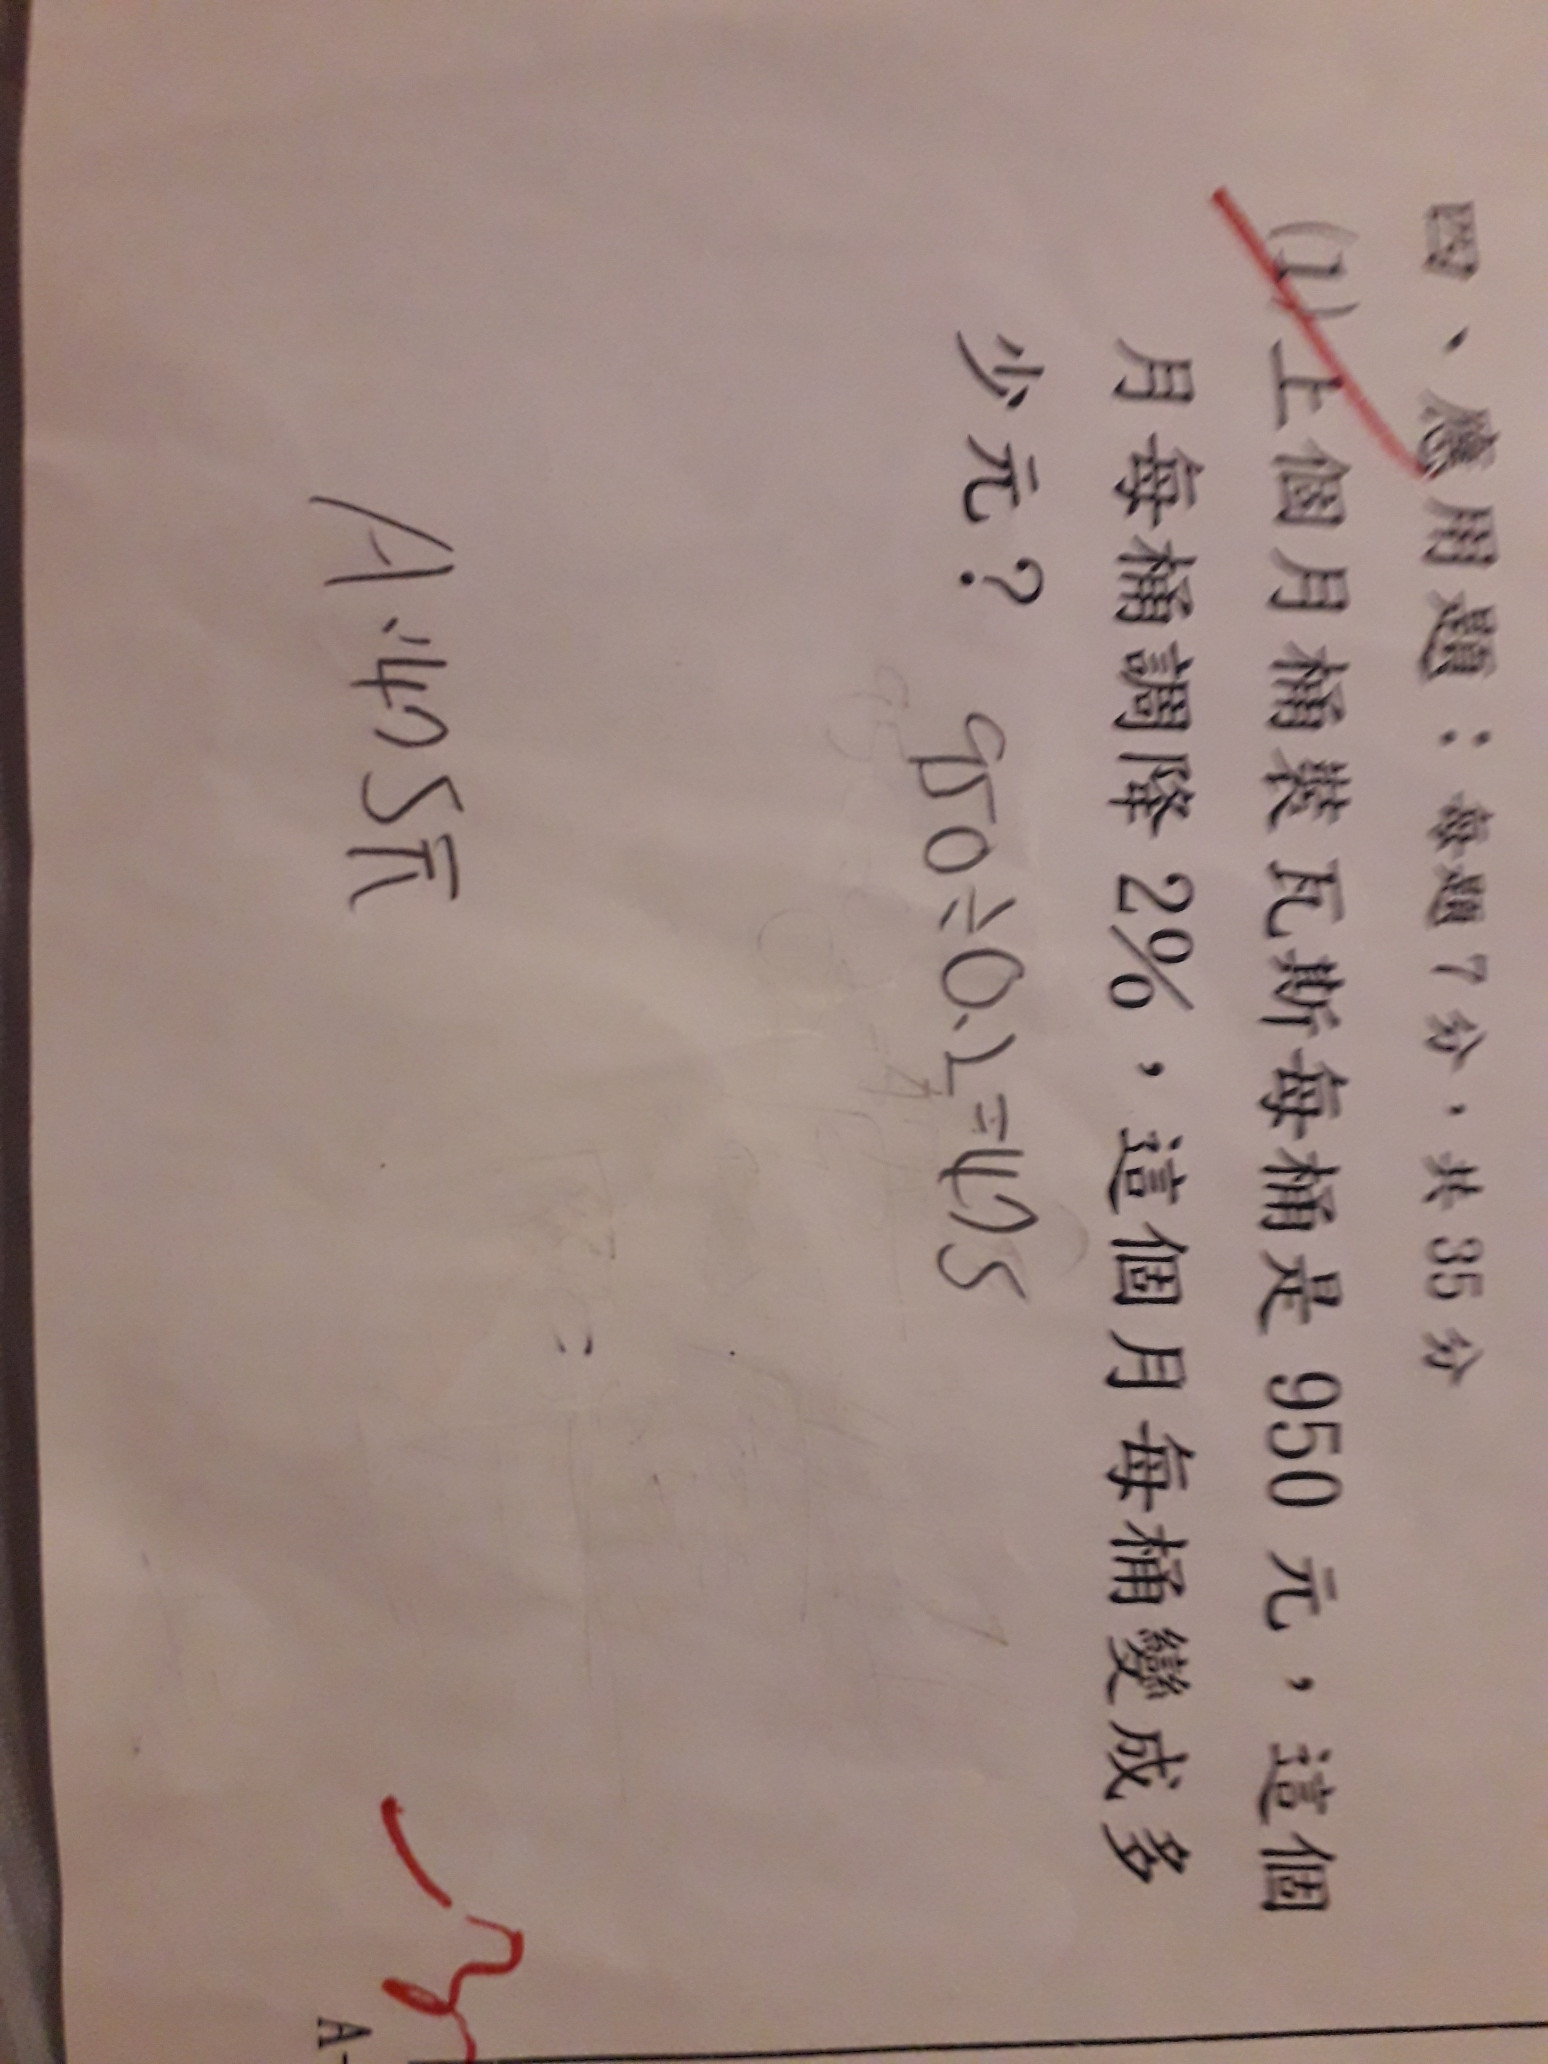 四、應用題：每題7分，共35分
(1)上個月桶裝瓦斯每桶是950元，這個
月每桶調降2%，這個月每桶變成多
少元？ 950÷0.2=475
A:475元
A-